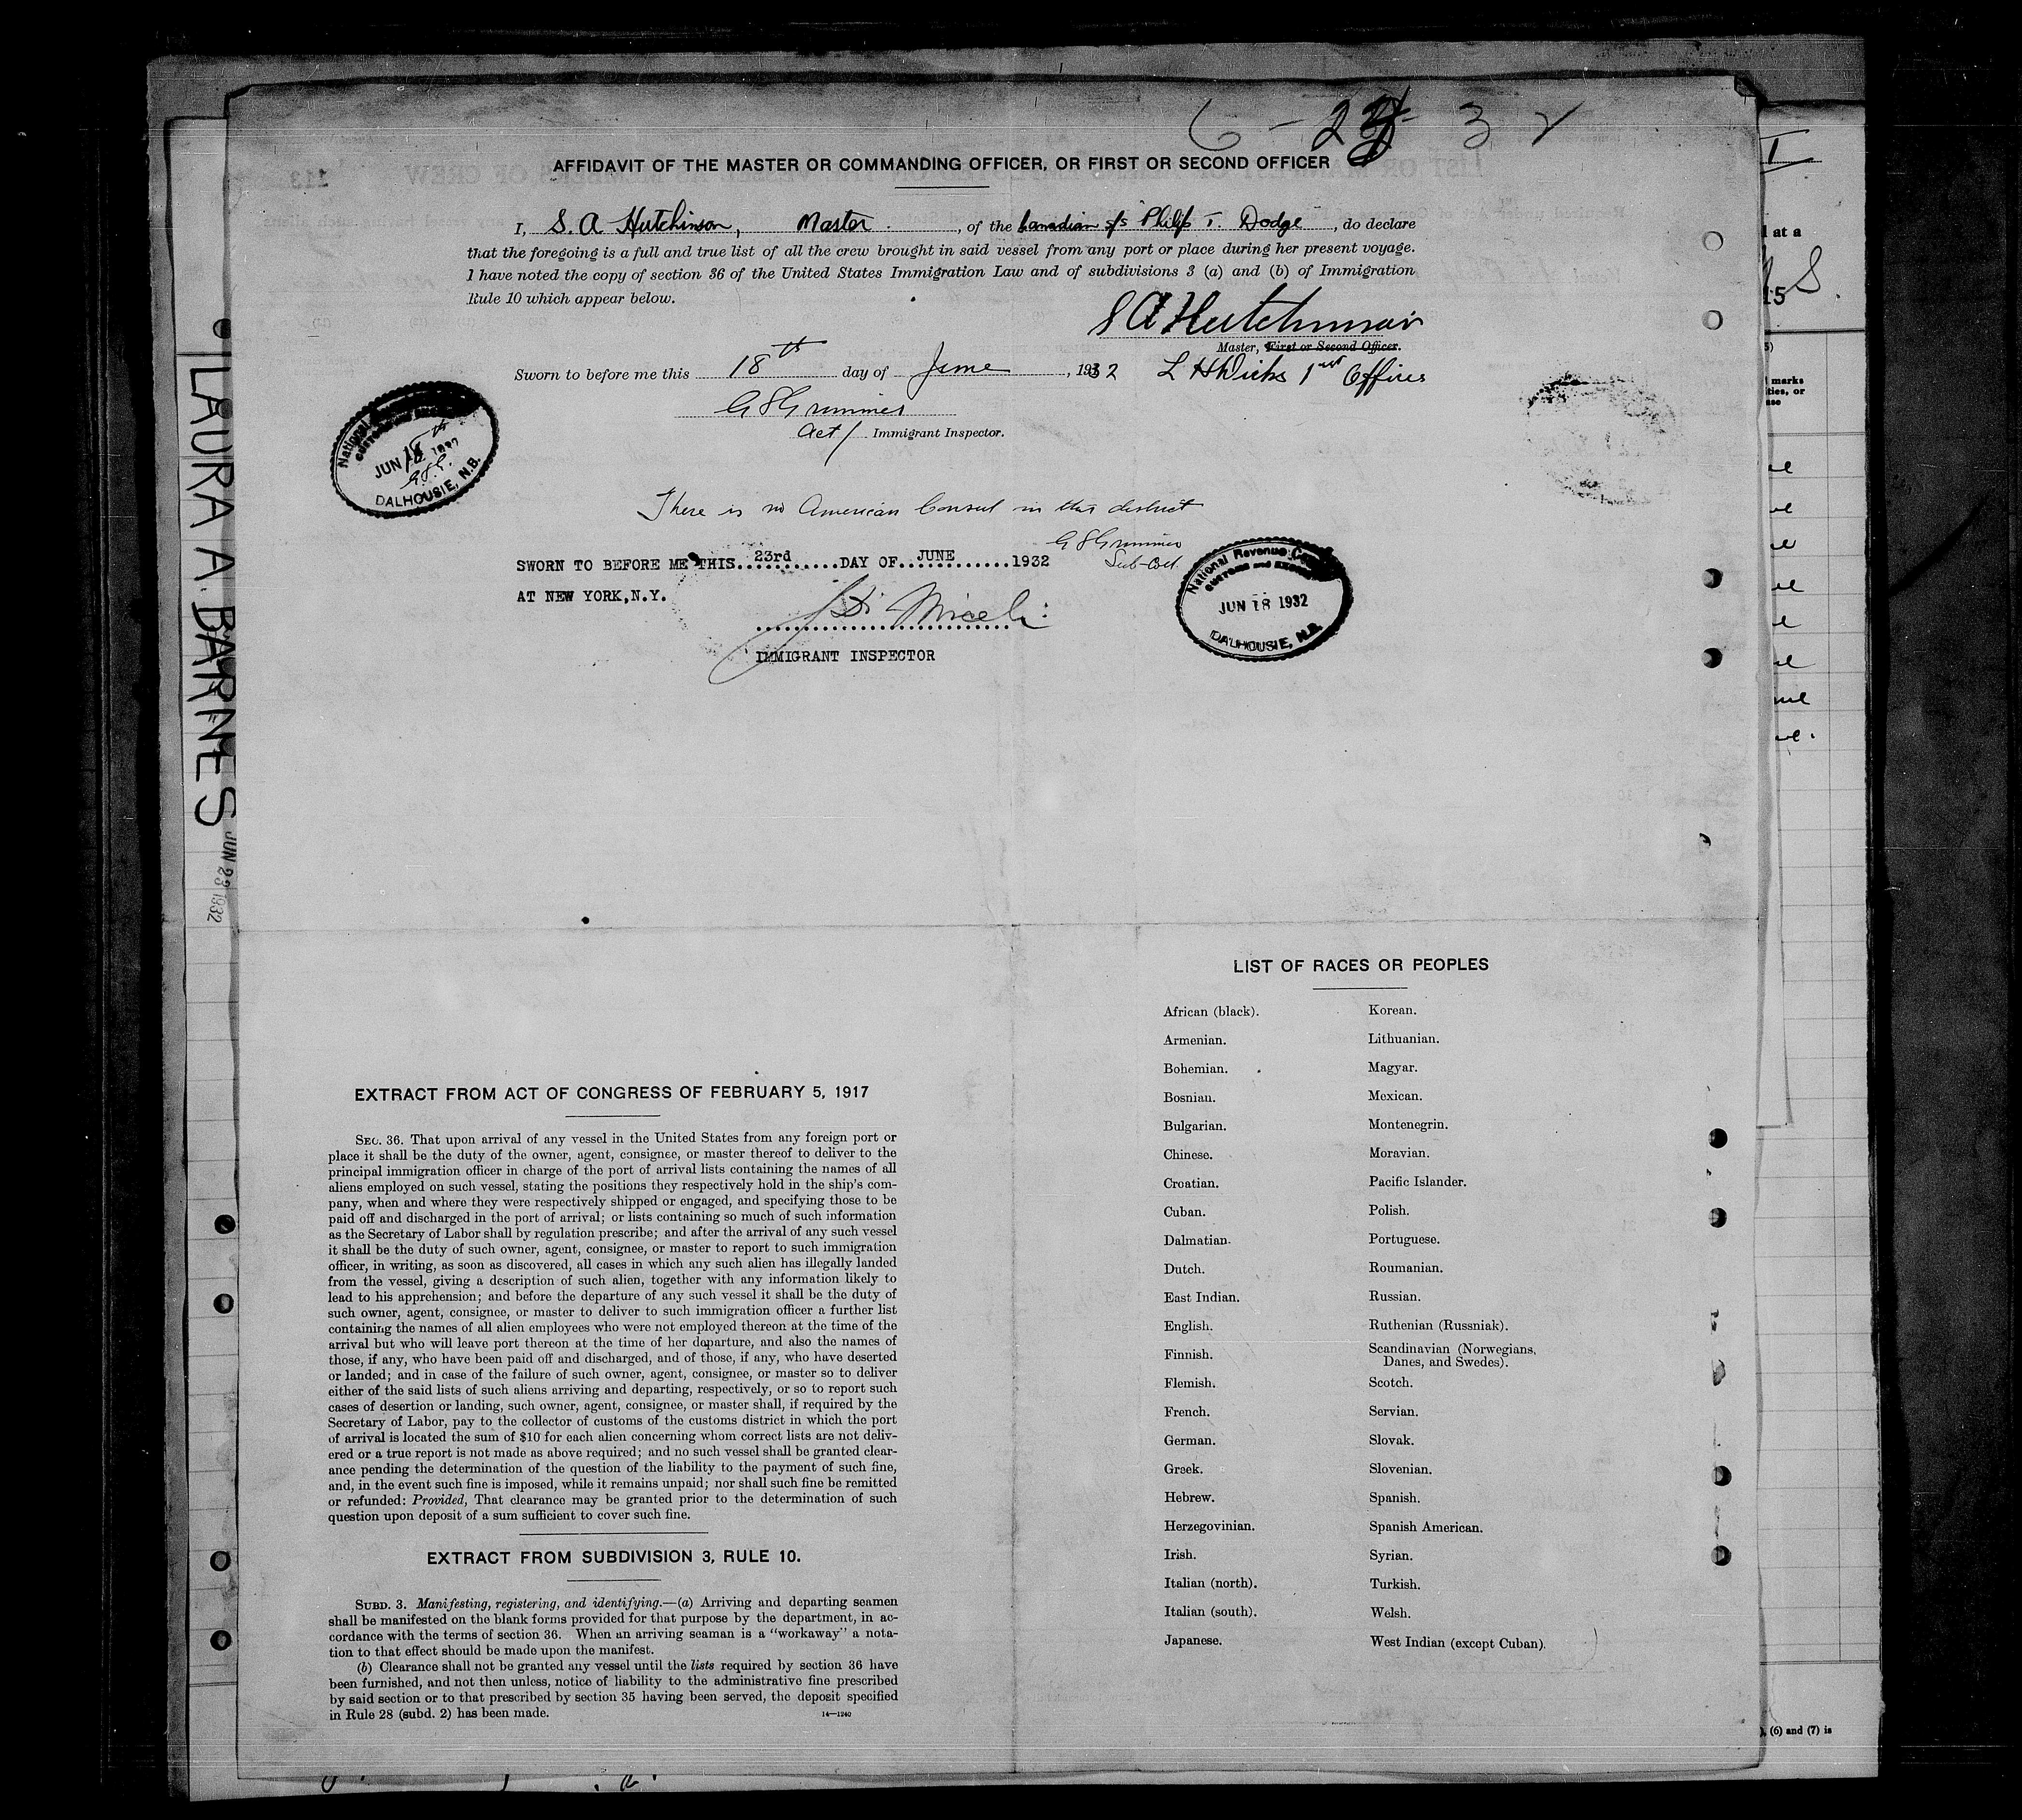 6 - 23 - 32
AFFIDAVIT OF THE MASTER OR COMMANDING OFFICER, OR FIRST OR SECOND OFFICER
I, S. A Hutchinson, Master, of the Canadian s/s Philip T. Dodge, do declare
that the foregoing is a full and true list of all the crew brought in said vessel from any port or place during her present voyage.
I have noted the copy of section 36 of the United States Immigration Law and of subdivisions 3 (a) and (b) of Immigration
Rule 10 which appear below.
S A Hutchinson
Master, First or Second Officer.
Sworn to before me this 18th day of June, 1932
L H Wicks 1st Officer
Act/ Immigrant Inspector.
National Revenue
JUN 18th
DALHOUSIE, N.B.
There is no American Consul in this district
SWORN TO BEFORE ME THIS 23rd DAY OF JUNE 1932
AT NEW YORK, N.Y.
IMMIGRANT INSPECTOR
National Revenue
CUSTOMS and EXCISE
JUN 18 1932
DALHOUSIE, N.B.
LAURA A. BARNES
JUN 23 1932
EXTRACT FROM ACT OF CONGRESS OF FEBRUARY 5, 1917
SEC. 36. That upon arrival of any vessel in the United States from any foreign port or
place it shall be the duty of the owner, agent, consignee, or master thereof to deliver to the
principal immigration officer in charge of the port of arrival lists containing the names of all
aliens employed on such vessel, stating the positions they respectively hold in the ship's com-
pany, when and where they were respectively shipped or engaged, and specifying those to be
paid off and discharged in the port of arrival; or lists containing so much of such information
as the Secretary of Labor shall by regulation prescribe; and after the arrival of any such vessel
it shall be the duty of such owner, agent, consignee, or master to report to such immigration
officer, in writing, as soon as discovered, all cases in which any such alien has illegally landed
from the vessel, giving a description of such alien, together with any information likely to
lead to his apprehension; and before the departure of any such vessel it shall be the duty of
such owner, agent, consignee, or master to deliver to such immigration officer a further list
containing the names of all alien employees who were not employed thereon at the time of the
arrival but who will leave port thereon at the time of her departure, and also the names of
those, if any, who have been paid off and discharged, and of those, if any, who have deserted
or landed; and in case of the failure of such owner, agent, consignee, or master so to deliver
either of the said lists of such aliens arriving and departing, respectively, or so to report such
cases of desertion or landing, such owner, agent, consignee, or master shall, if required by the
Secretary of Labor, pay to the collector of customs of the customs district in which the port
of arrival is located the sum of $10 for each alien concerning whom correct lists are not deliv-
ered or a true report is not made as above required; and no such vessel shall be granted clear-
ance pending the determination of the question of the liability to the payment of such fine,
and, in the event such fine is imposed, while it remains unpaid; nor shall such fine be remitted
or refunded: Provided, That clearance may be granted prior to the determination of such
question upon deposit of a sum sufficient to cover such fine.
EXTRACT FROM SUBDIVISION 3, RULE 10.
SUBD. 3. Manifesting, registering, and identifying.—(a) Arriving and departing seamen
shall be manifested on the blank forms provided for that purpose by the department, in ac-
cordance with the terms of section 36. When an arriving seaman is a "workaway" a nota-
tion to that effect should be made upon the manifest.
(b) Clearance shall not be granted any vessel until the lists required by section 36 have
been furnished, and not then unless, notice of liability to the administrative fine prescribed
by said section or to that prescribed by section 35 having been served, the deposit specified
in Rule 28 (subd. 2) has been made.
14—1240
LIST OF RACES OR PEOPLES
African (black).
Armenian.
Bohemian.
Bosnian.
Bulgarian.
Chinese.
Croatian.
Cuban.
Dalmatian.
Dutch.
East Indian.
English.
Finnish.
Flemish.
French.
German.
Greek.
Hebrew.
Herzegovinian.
Irish.
Italian (north).
Italian (south).
Japanese.
Korean.
Lithuanian.
Magyar.
Mexican.
Montenegrin.
Moravian.
Pacific Islander.
Polish.
Portuguese.
Roumanian.
Russian.
Ruthenian (Russniak).
Scandinavian (Norwegians,
Danes, and Swedes).
Scotch.
Servian.
Slovak.
Slovenian.
Spanish.
Spanish American.
Syrian.
Turkish.
Welsh.
West Indian (except Cuban).
at a
15
marks
ties, or
(6) and (7) is